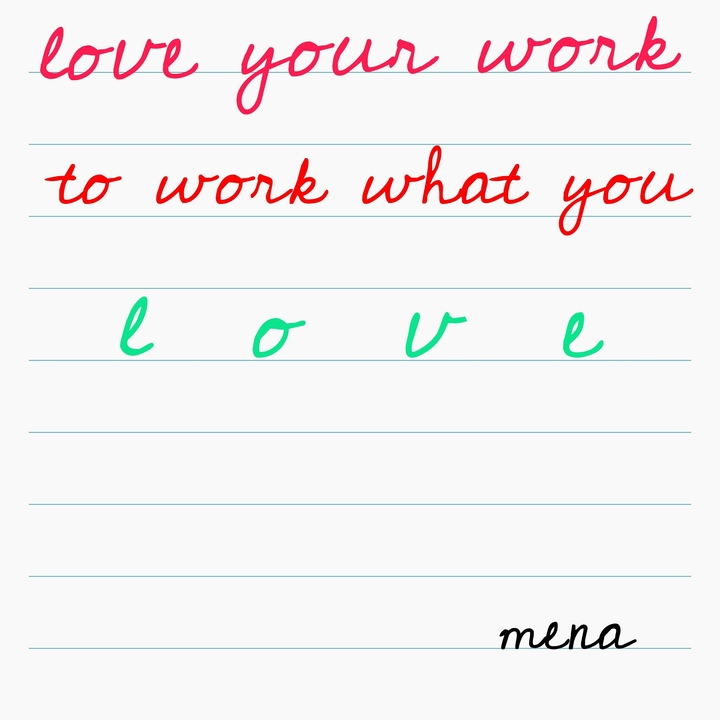 love your work
to work what you
l o v e
mena